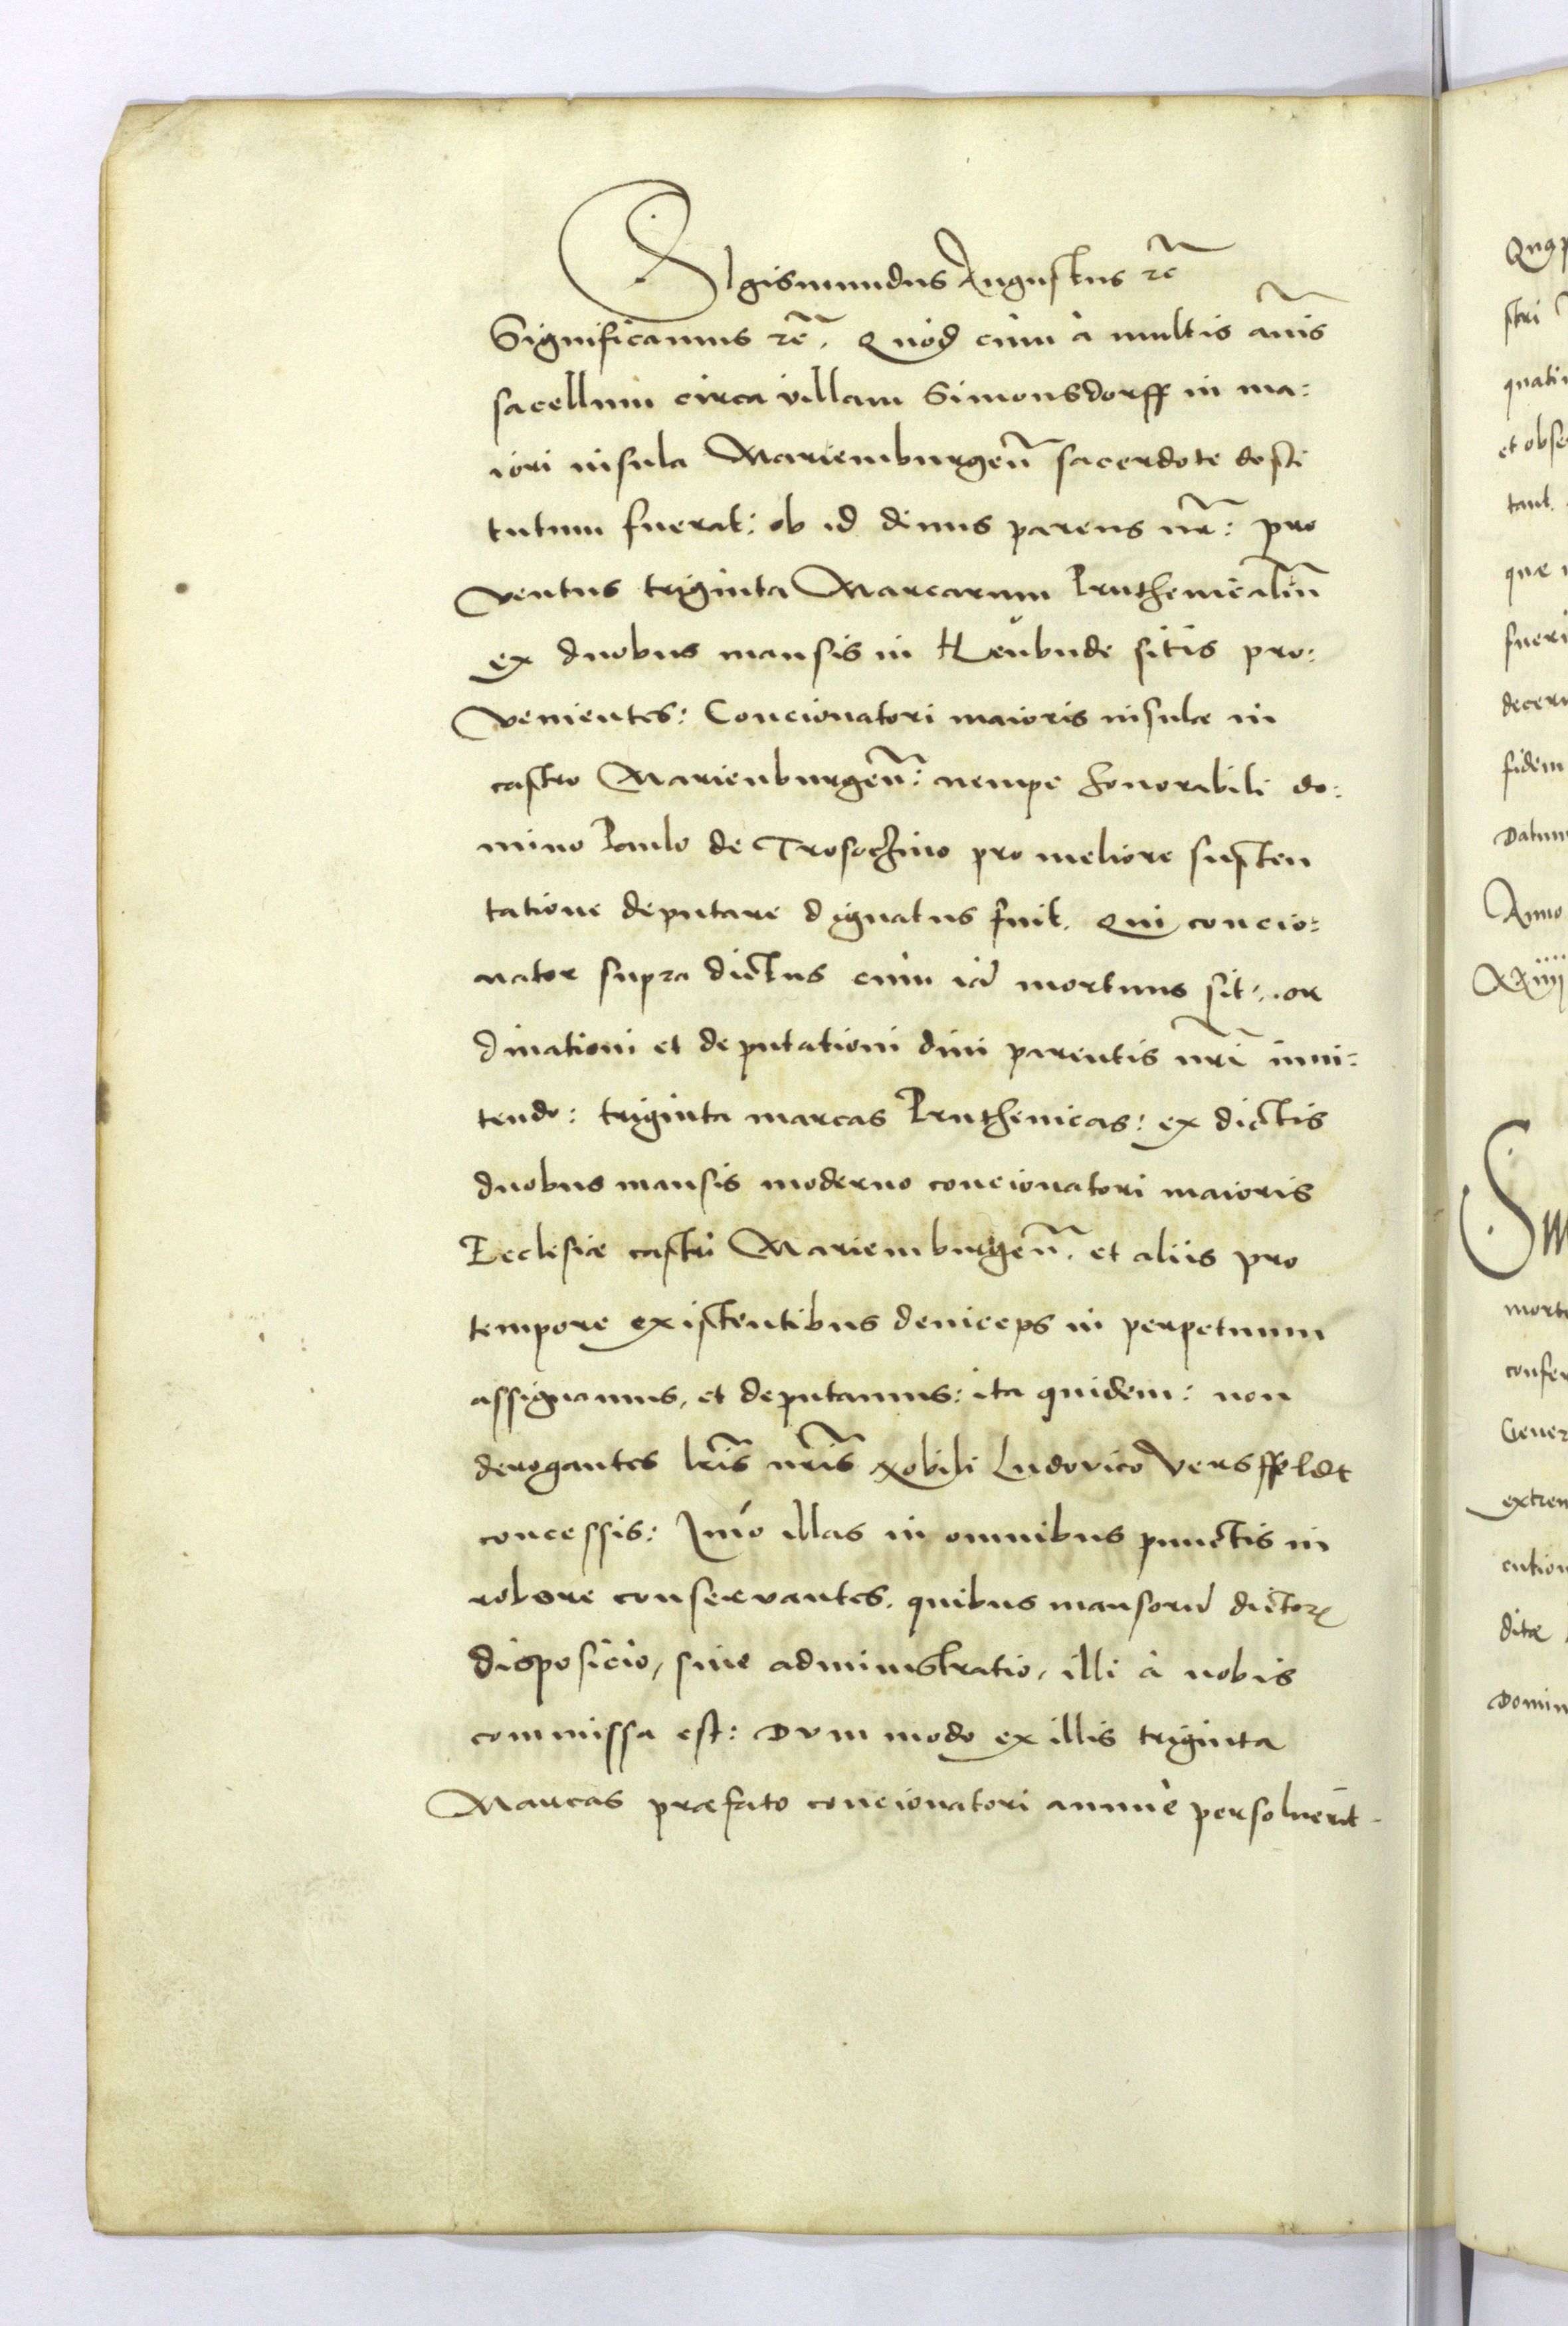 SIgismundus Augustus rc̄
Significamus rc̄. Quod cùm à multis an̄is
sacellum circa villam Simonsdorff in ma:
iori insula Mariemburgen̄ sacerdote desti
tutum fuerat: ob id diuus parens nr̄: pro
ventus triginta Marcarum Pruthenicaliū
ex duobus mansis in Heŭbude sitis pro:
venientes: Concionatori maioris insulæ in
castro Marienburgen̄: nempe honorabili do:
mino Paulo de Trosochino pro meliore susten
tatione deputare dignatus fuit. Qui concio:
nator supra dictus cùm iã mortuus sit: or
dinationi et deputationi diui parentis nr̄i inni:
tendo: triginta marcas Pruthenicas: ex dictis
duobus mansis moderno concionatori maioris
Ecclesiæ castri Mariemburgen̄. et aliis pro
tempore existentibus deinceps in perpetuum
assignamus, et deputamus: ita quidem: non
derogantes lr̄is nr̄is Nobili Ludovico Versffeldt
concessis: Imó illas in omnibus punctis in
robore conservantes. quibus mansorũ dictorꝫ
disposicio, siue administratio, illi à nobis
commissa est: Dum modo ex illis triginta
Marcas præfato concionatori annuè persoluerit.
Anno
fidem
Datum